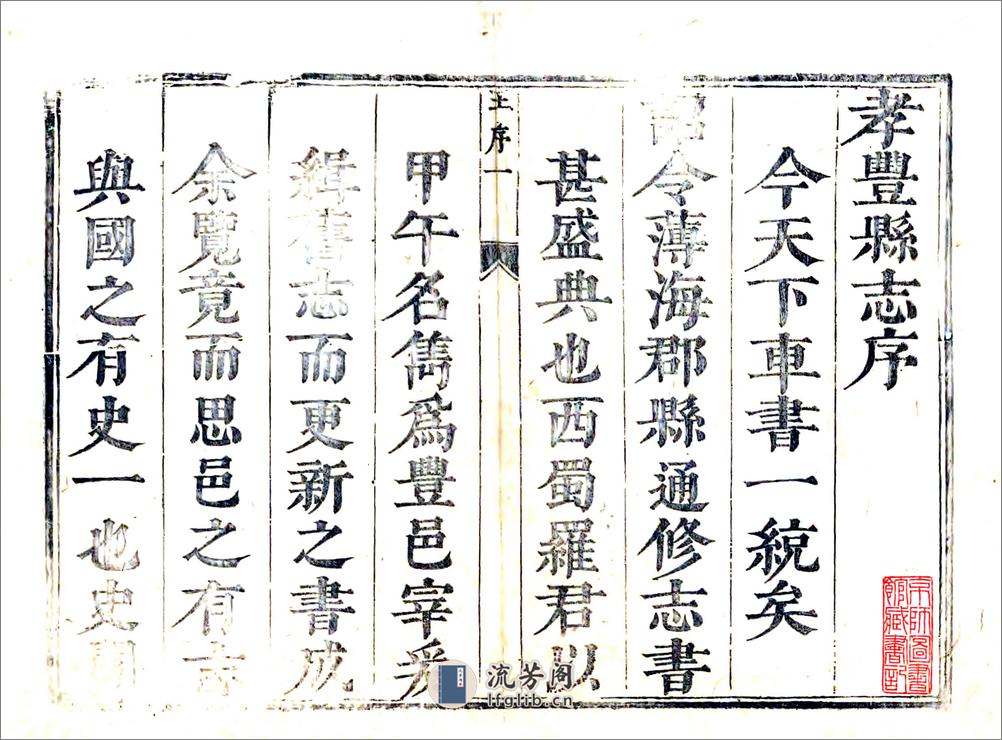 孝豐縣志序
今天下車書一統矣
詔令薄海郡縣通修志書
甚盛典也西蜀羅君以
王序一
甲午名雋爲豐邑宰爰
緝舊志而更新之書成
余覽竟而思邑之有志
與國之有史一也史
京師圖書
館藏書記
流芳阁
lfglib.cn